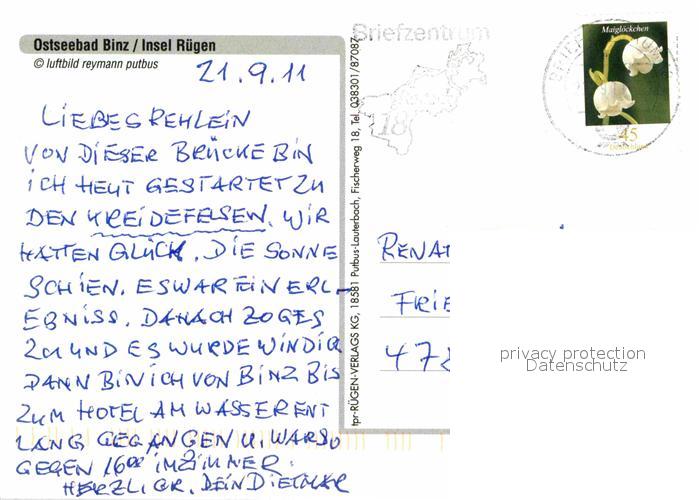 Ostseebad Binz / Insel Rügen
© luftbild reymann putbus
21.9.11
LIEBES REHLEIN
VON DIESER BRÜCKE BIN
ICH HEUT GESTARTET ZU
DEN KREIDEFELSEN. WIR
HATTEN GLÜCK. DIE SONNE
SCHIEN. ES WAR EIN ERL-
EBNISS. DANACH ZOG ES
ZU UND ES WURDE WINDIG
DANN BIN ICH VON BINZ BIS
ZUM HOTEL AM WASSER ENT
LANG GEGANGEN U. WAR SO
GEGEN 16°° IM ZIMMER.
HERZLICH. DEIN DIETMAR
tpr-RÜGEN-VERLAGS KG, 18581 Putbus-Lauterbach, Fischerweg 18, Tel. 038301/87087
Briefzentrum
18
Maiglöckchen
45
Deutschland
RENAT
FRIE
472
privacy protection
Datenschutz